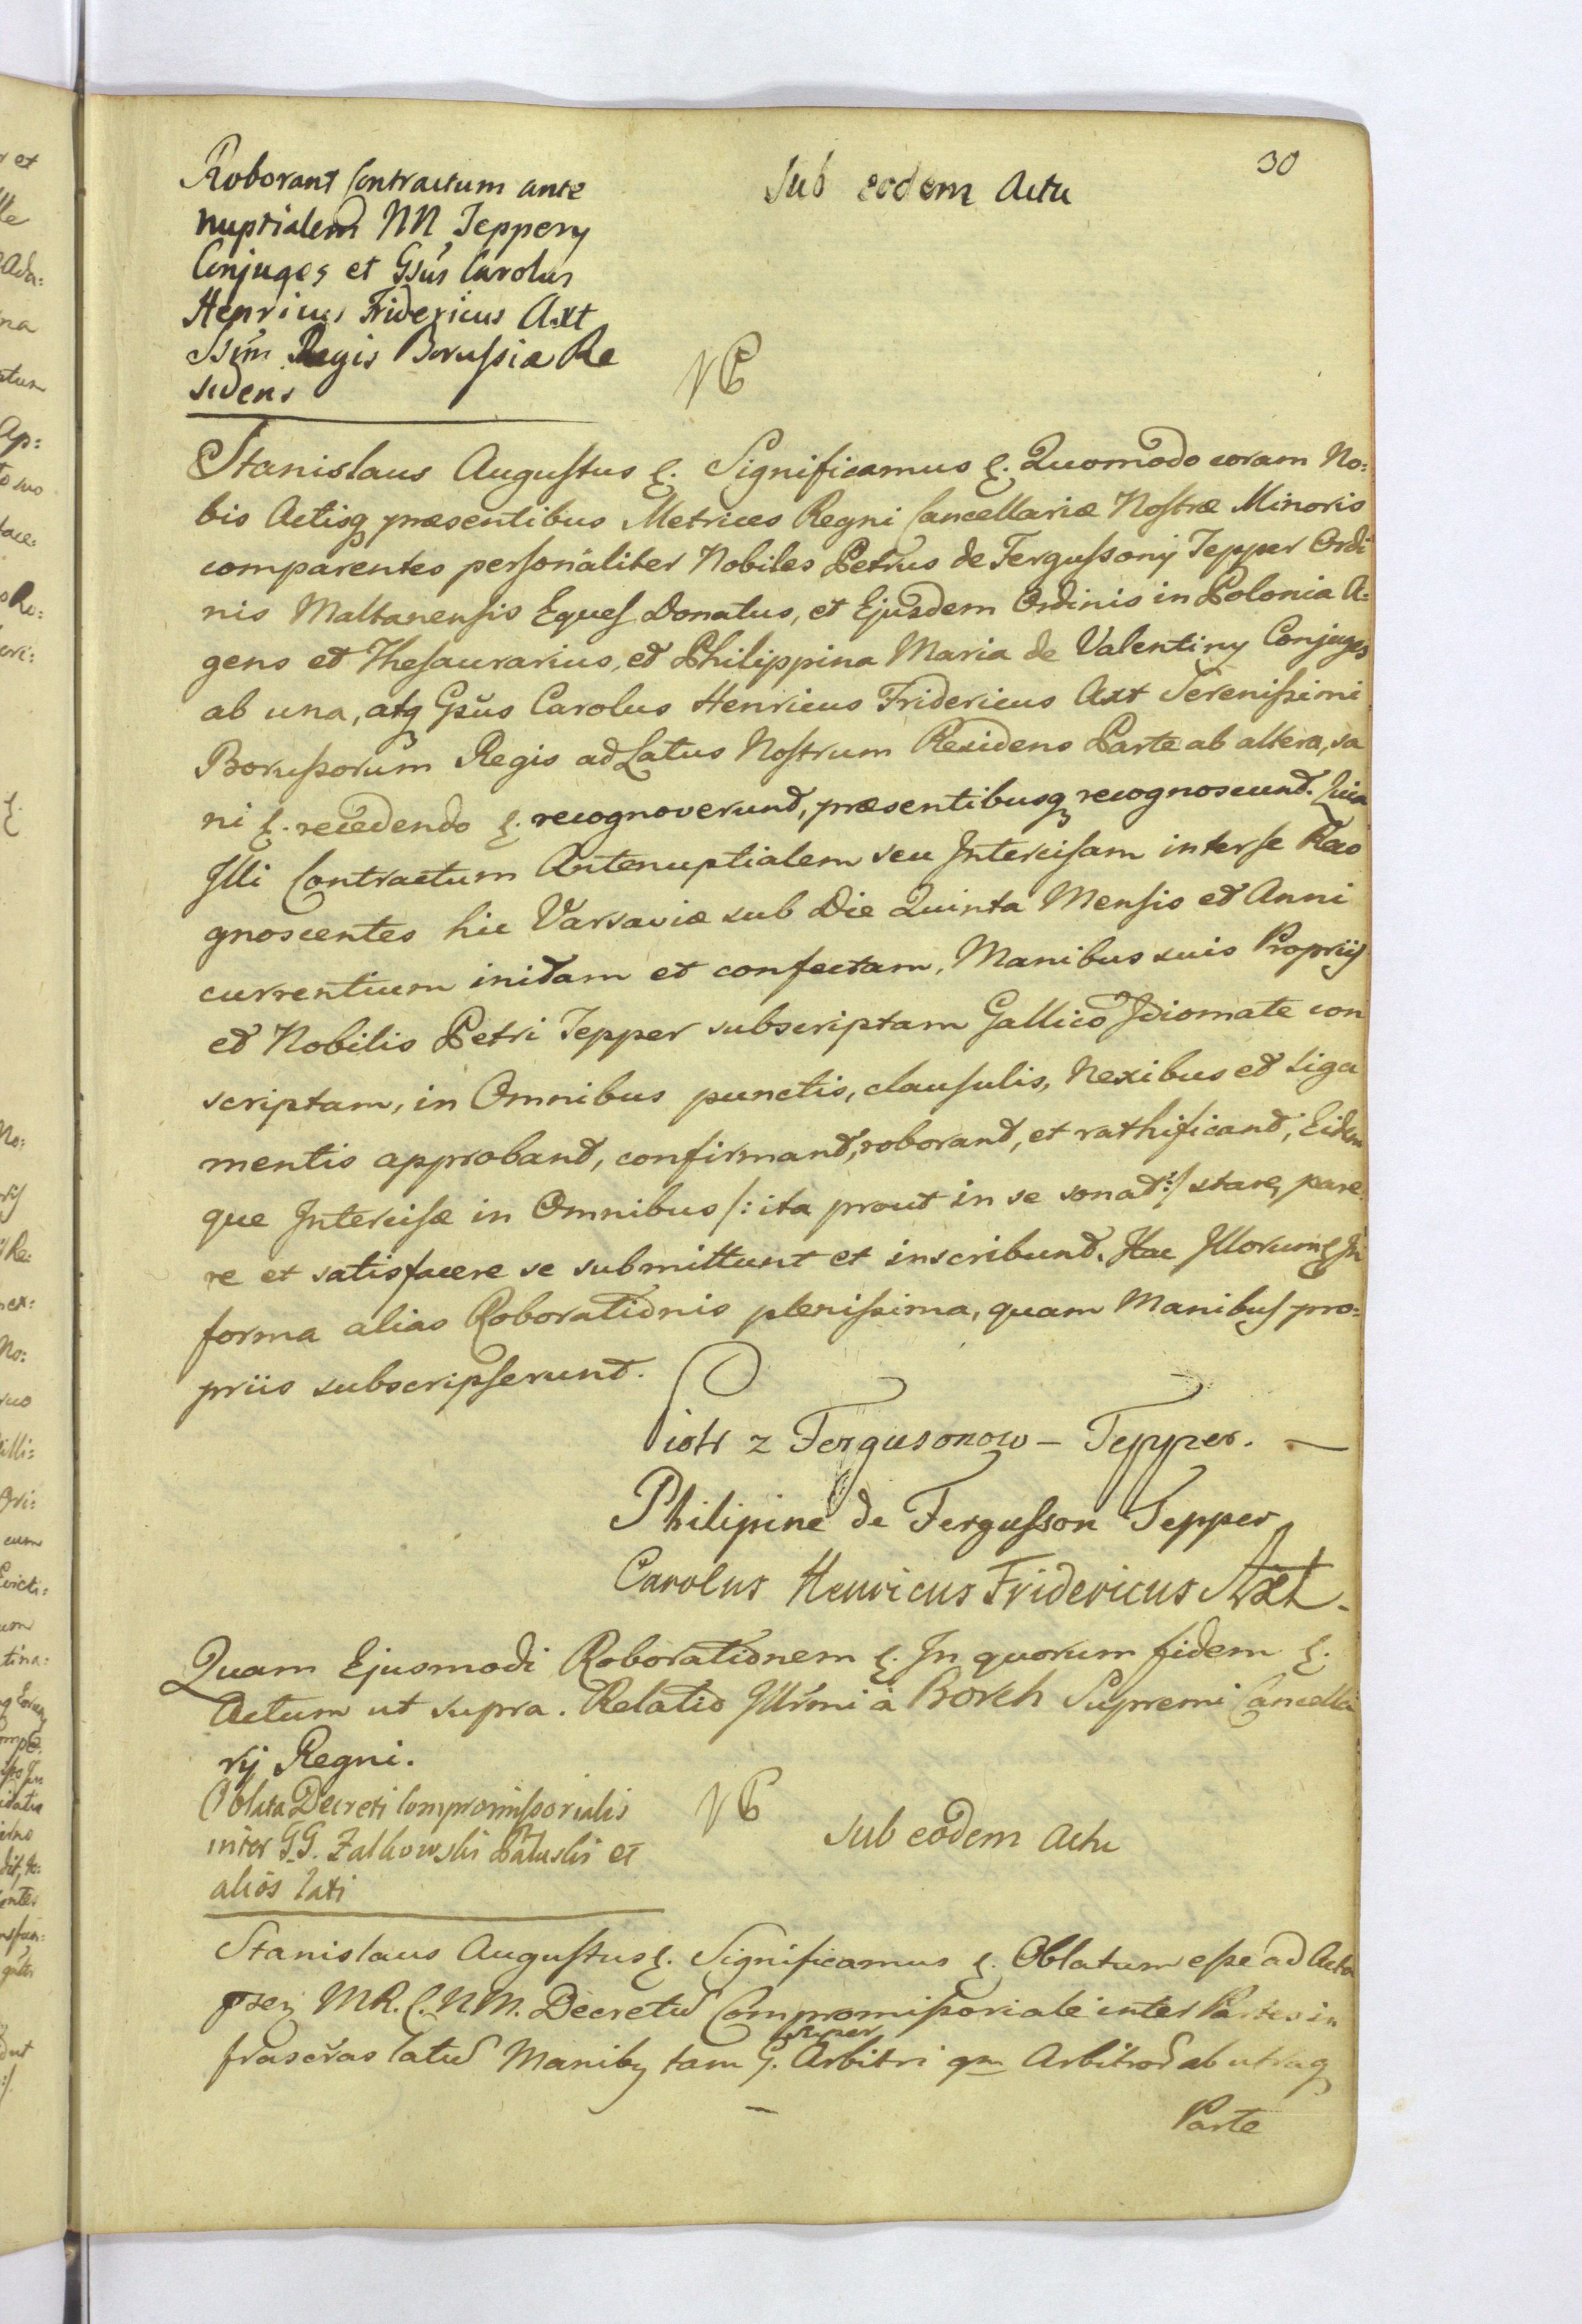 30
Roborant Contractum ante
nuptialem NN Teppery
Conjuges et Gsus Carolus
Henricus Fridericus Axt
Ssimi Regis Borussiæ Re
sidens
Sub eodem Actu
Stanislaus Augustus &. Significamus &. Quomodo coram No:
bis Actisq præsentibus Metrices Regni Cancellariæ Nostræ Minoris
comparentes personaliter Nobiles Petrus de Fergussony Tepper Ordi
nis Maltanensis Eques Donatus, et Ejusdem Ordinis in Polonia A:
gens et Thesaurarius, et Philippina Maria de Valentiny Conjuges
ab una, atq Gsus Carolus Henricus Fridericus Axt Serenissimi
Borussorum Regis ad Latus Nostrum Residens Parte ab altera, sa
ni &. recedendo &. recognoverunt, præsentibusq recognoscunt. Quia
Illi Contractum Antenuptialem seu Intercisam inter se Reco
gnoscentes hic Varsaviæ sub Die Quinta Mensis et Anni
currentium initam et confectam, Manibus suis Propriis
et Nobilis Petri Tepper subscriptam Gallico Idiomate con
scriptam, in Omnibus punctis, clausulis, Nexibus et Liga
mentis approband, confirmand, roborand, et rathificand, Eidem
que Intercisæ in Omnibus /: ita prout in se sonat :/ stare, pare
re et satisfacere se submittunt et inscribunt. Hac Illorum & In
forma alias Roborationis plenissima, quam Manibus pro:
priis subscripserunt.
Piotr z Fergusonow – Tepper. —
Philipine de Fergusson Tepper
Carolus Henricus Fridericus Axt.
Quam Ejusmodi Roborationem &. In quorum fidem &.
Actum ut supra. Relatio Illrmi à Borch Supremi Cancella
rij Regni.
Oblata Decreti Compromissorialis
inter GG. Zalkowski Paluski et
alios lati
Sub eodem Actu
Stanislaus Augustus &. Significamus &. Oblatum esse ad Acta
MR. C. N M. Decretu Compromissoriale inter Partes in
frascras latu Maniby tam G. super Arbitri qm Arbitror ab utraq
Parte